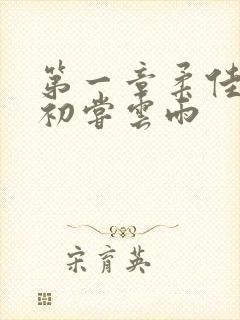 第一章柔佳
初嘗雲雨
宋育英